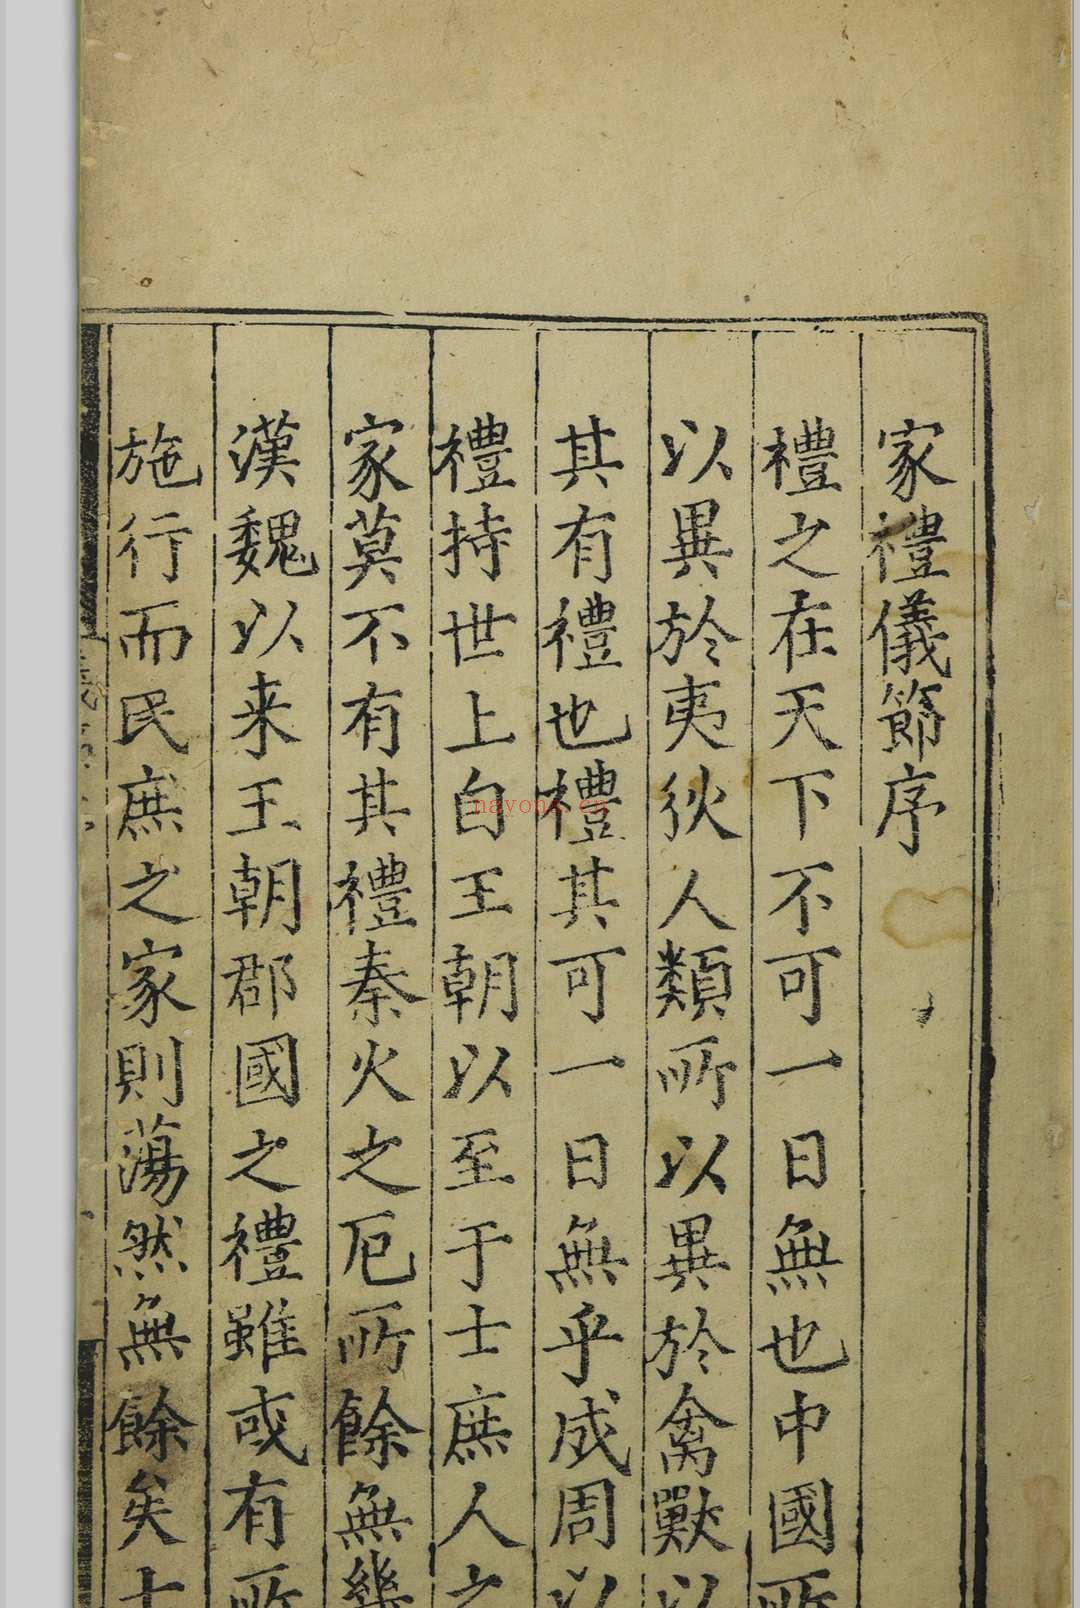 家禮儀節序
禮之在天下不可一日無也中國所
以異於夷狄人類所以異於禽獸以
其有禮也禮其可一日無乎成周以
禮持世上自王朝以至于士庶人之
家莫不有其禮秦火之厄所餘無幾
漢魏以来王朝郡國之禮雖或有所
施行而民庶之家則蕩然無餘矣士
nayona.cn